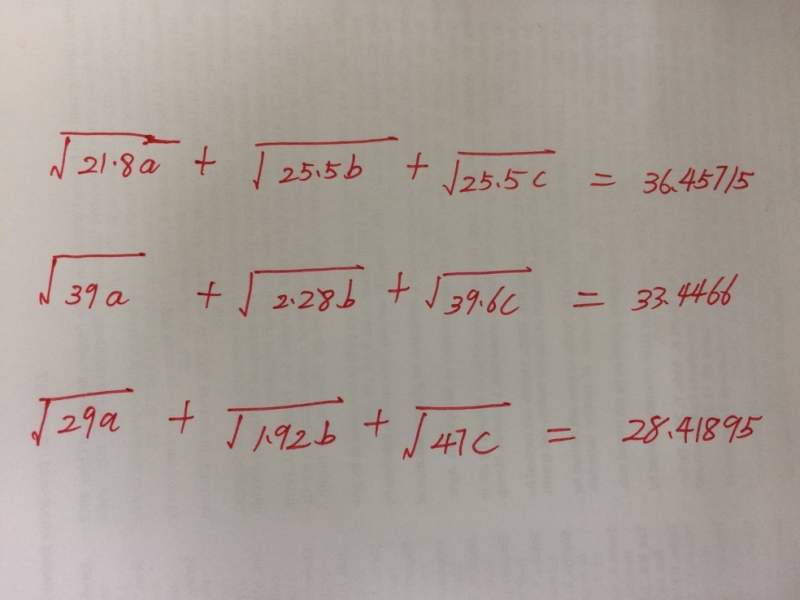 √21.8a + √25.5b + √25.5c = 36.45715
√39a + √2.28b + √39.6c = 33.4466
√29a + √1.92b + √47c = 28.41895